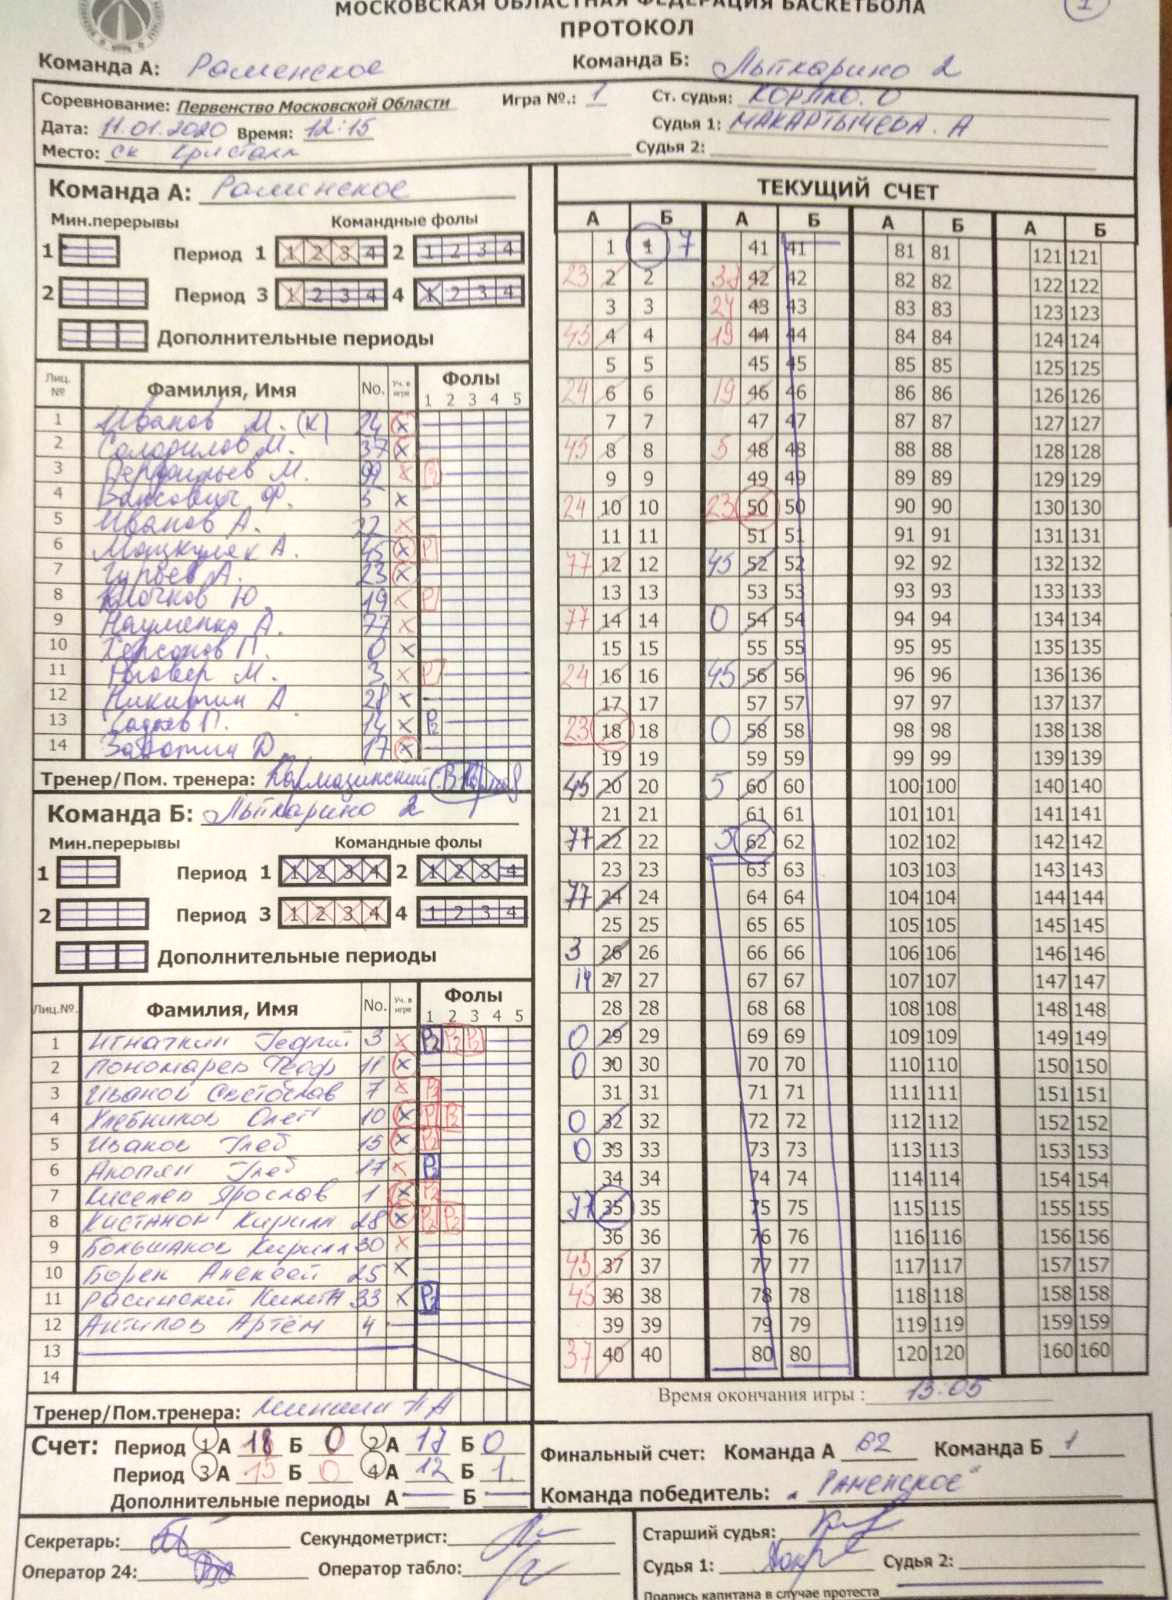 МОСКОВСКАЯ ОБЛАСТНАЯ ФЕДЕРАЦИЯ БАСКЕТБОЛА
ПРОТОКОЛ
Команда А: Раменское Команда Б: Лыткарино 2
Соревнование: Первенство Московской Области Игра №.: 1 Ст. судья:
Дата: 11.01.2020 Время: 12:15 Судья 1: МАКАРТЫЧЕВА. А
Место: ск Кристалл Судья 2:
Команда А: Раменское
Мин.перерывы Командные фолы
1 Период 1 1 2 3 4 2 1 2 3 4
2 Период 3 1 2 3 4 4 1 2 3 4
Дополнительные периоды
Лиц. № Фамилия, Имя No. Уч. в игре Фолы 1 2 3 4 5
1 Иванов М. (К) 24 x
2 Солодилов М. 37 x
3 М. 99 x P2
4 Ф. 5 x
5 Иванов А. 22 x
6 А. 45 x P1
7 Гурьев А. 23 x
8 Клочков Ю 19 x P1
9 Науменко А. 77 x
10 Херсонов П. 0 x
11 М. 3 x P1
12 Никитин А 28 x
13 П. 14 x P2
14 Д 17 x
Тренер/Пом. тренера: Кармазинский С.В.
Команда Б: Лыткарино 2
Мин.перерывы Командные фолы
1 Период 1 1 2 3 4 2 1 2 3 4
2 Период 3 1 2 3 4 4 1 2 3 4
Дополнительные периоды
Лиц.№. Фамилия, Имя No. Уч. в игре Фолы 1 2 3 4 5
1 Игнаткин 3 x P2 P2 P2
2 Пономарев 11 x
3 Иванов Святослав 7 x P2
4 Хлебников Олег 10 x P1 P2
5 Иванов Глеб 15 x P2
6 Акопян Глеб 17 x P2
7 Киселев Ярослав 1 x P2
8 Кистанов Кирилл 28 x P2 P2
9 Большаков Кирилл 30 x
10 Алексей 25 x
11 Расинский Никита 33 x P2
12 Антипов Артём 4
13
14
Тренер/Пом.тренера:
Счет: Период 1 А 18 Б 0 2 А 17 Б 0
Период 3 А 15 Б 0 4 А 12 Б 1
Дополнительные периоды А Б
Секретарь: Секундометрист:
Оператор 24: Оператор табло:
ТЕКУЩИЙ СЧЕТ
А Б А Б А Б А Б
1 1 7 41 41 81 81 121 121
23 2 2 37 42 42 82 82 122 122
3 3 24 43 43 83 83 123 123
45 4 4 19 44 44 84 84 124 124
5 5 45 45 85 85 125 125
24 6 6 19 46 46 86 86 126 126
7 7 47 47 87 87 127 127
45 8 8 5 48 48 88 88 128 128
9 9 49 49 89 89 129 129
24 10 10 23 50 50 90 90 130 130
11 11 51 51 91 91 131 131
77 12 12 45 52 52 92 92 132 132
13 13 53 53 93 93 133 133
77 14 14 0 54 54 94 94 134 134
15 15 55 55 95 95 135 135
24 16 16 45 56 56 96 96 136 136
17 17 57 57 97 97 137 137
23 18 18 0 58 58 98 98 138 138
19 19 59 59 99 99 139 139
45 20 20 5 60 60 100 100 140 140
21 21 61 61 101 101 141 141
77 22 22 5 62 62 102 102 142 142
23 23 63 63 103 103 143 143
77 24 24 64 64 104 104 144 144
25 25 65 65 105 105 145 145
3 26 26 66 66 106 106 146 146
14 27 27 67 67 107 107 147 147
28 28 68 68 108 108 148 148
0 29 29 69 69 109 109 149 149
0 30 30 70 70 110 110 150 150
31 31 71 71 111 111 151 151
0 32 32 72 72 112 112 152 152
0 33 33 73 73 113 113 153 153
34 34 74 74 114 114 154 154
77 35 35 75 75 115 115 155 155
36 36 76 76 116 116 156 156
45 37 37 77 77 117 117 157 157
45 38 38 78 78 118 118 158 158
39 39 79 79 119 119 159 159
37 40 40 80 80 120 120 160 160
Время окончания игры : 13:05
Финальный счет: Команда А 62 Команда Б 1
Команда победитель: "Раменское"
Старший судья:
Судья 1: Судья 2:
Подпись капитана в случае протеста